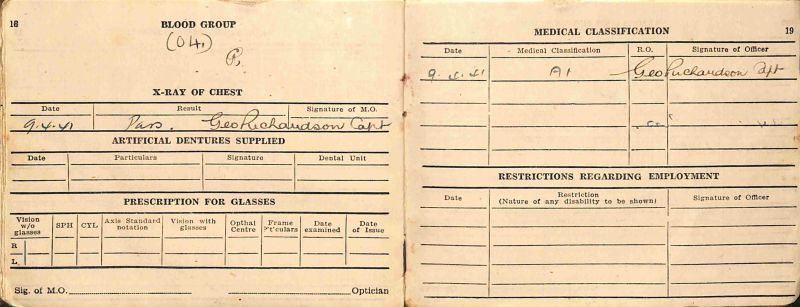 18
BLOOD GROUP
(O4.)
X-RAY OF CHEST
Date Result Signature of M.O.
9.4.41 Pass. Geo Richardson Capt
ARTIFICIAL DENTURES SUPPLIED
Date Particulars Signature Dental Unit
PRESCRIPTION FOR GLASSES
Vision w/o glasses SPH CYL Axis Standard notation Vision with glasses Opthal Centre Frame P't'culars Date examined Date of Issue
R
L
Sig. of M.O. Optician
MEDICAL CLASSIFICATION 19
Date Medical Classification R.O. Signature of Officer
9.4.41 A1 Geo Richardson Capt
RESTRICTIONS REGARDING EMPLOYMENT
Date Restriction (Nature of any disability to be shown) Signature of Officer